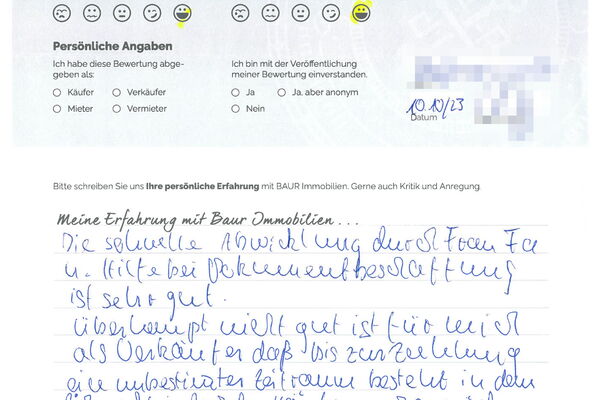 Persönliche Angaben
Ich habe diese Bewertung abge-
geben als:
Käufer Verkäufer
Mieter Vermieter
Ich bin mit der Veröffentlichung
meiner Bewertung einverstanden.
Ja Ja, aber anonym
Nein
10.10/23
Datum
Bitte schreiben Sie uns Ihre persönliche Erfahrung mit BAUR Immobilien. Gerne auch Kritik und Anregung.
Meine Erfahrung mit Baur Immobilien...
Die schnelle Abwicklung durch Frau Fa
u. Hilfe bei Dokumentbeschaffung
ist sehr gut.
überhaupt nicht gut ist für mich
als Verkäufer daß bis zur Zahlung
ein unbestimmter Zeitraum besteht in dem